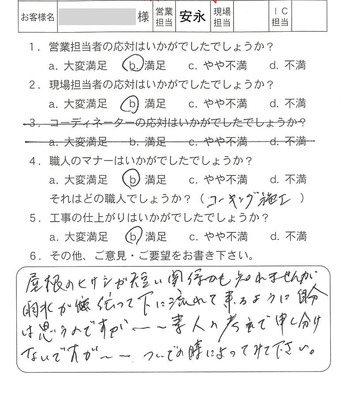 お客様名 様 営業担当 安永 現場担当 IC担当
1. 営業担当者の応対はいかがでしたでしょうか？
a. 大変満足 b. 満足 c. やや不満 d. 不満
2. 現場担当者の応対はいかがでしたでしょうか？
a. 大変満足 b. 満足 c. やや不満 d. 不満
3. コーディネーターの応対はいかがでしたでしょうか？
a. 大変満足 b. 満足 c. やや不満 d. 不満
4. 職人のマナーはいかがでしたでしょうか？
a. 大変満足 b. 満足 c. やや不満 d. 不満
それはどの職人でしょうか？（コーキング施工）
5. 工事の仕上がりはいかがでしたでしょうか？
a. 大変満足 b. 満足 c. やや不満 d. 不満
6. その他、ご意見・ご要望をお書き下さい。
屋根のヒサシが短い関係かも知れませんが
雨水が 伝って下に流れて来るように自分
は思うのですが〜〜素人の考えで申し分け
ないですが〜〜ついでの時によってみて下さい。